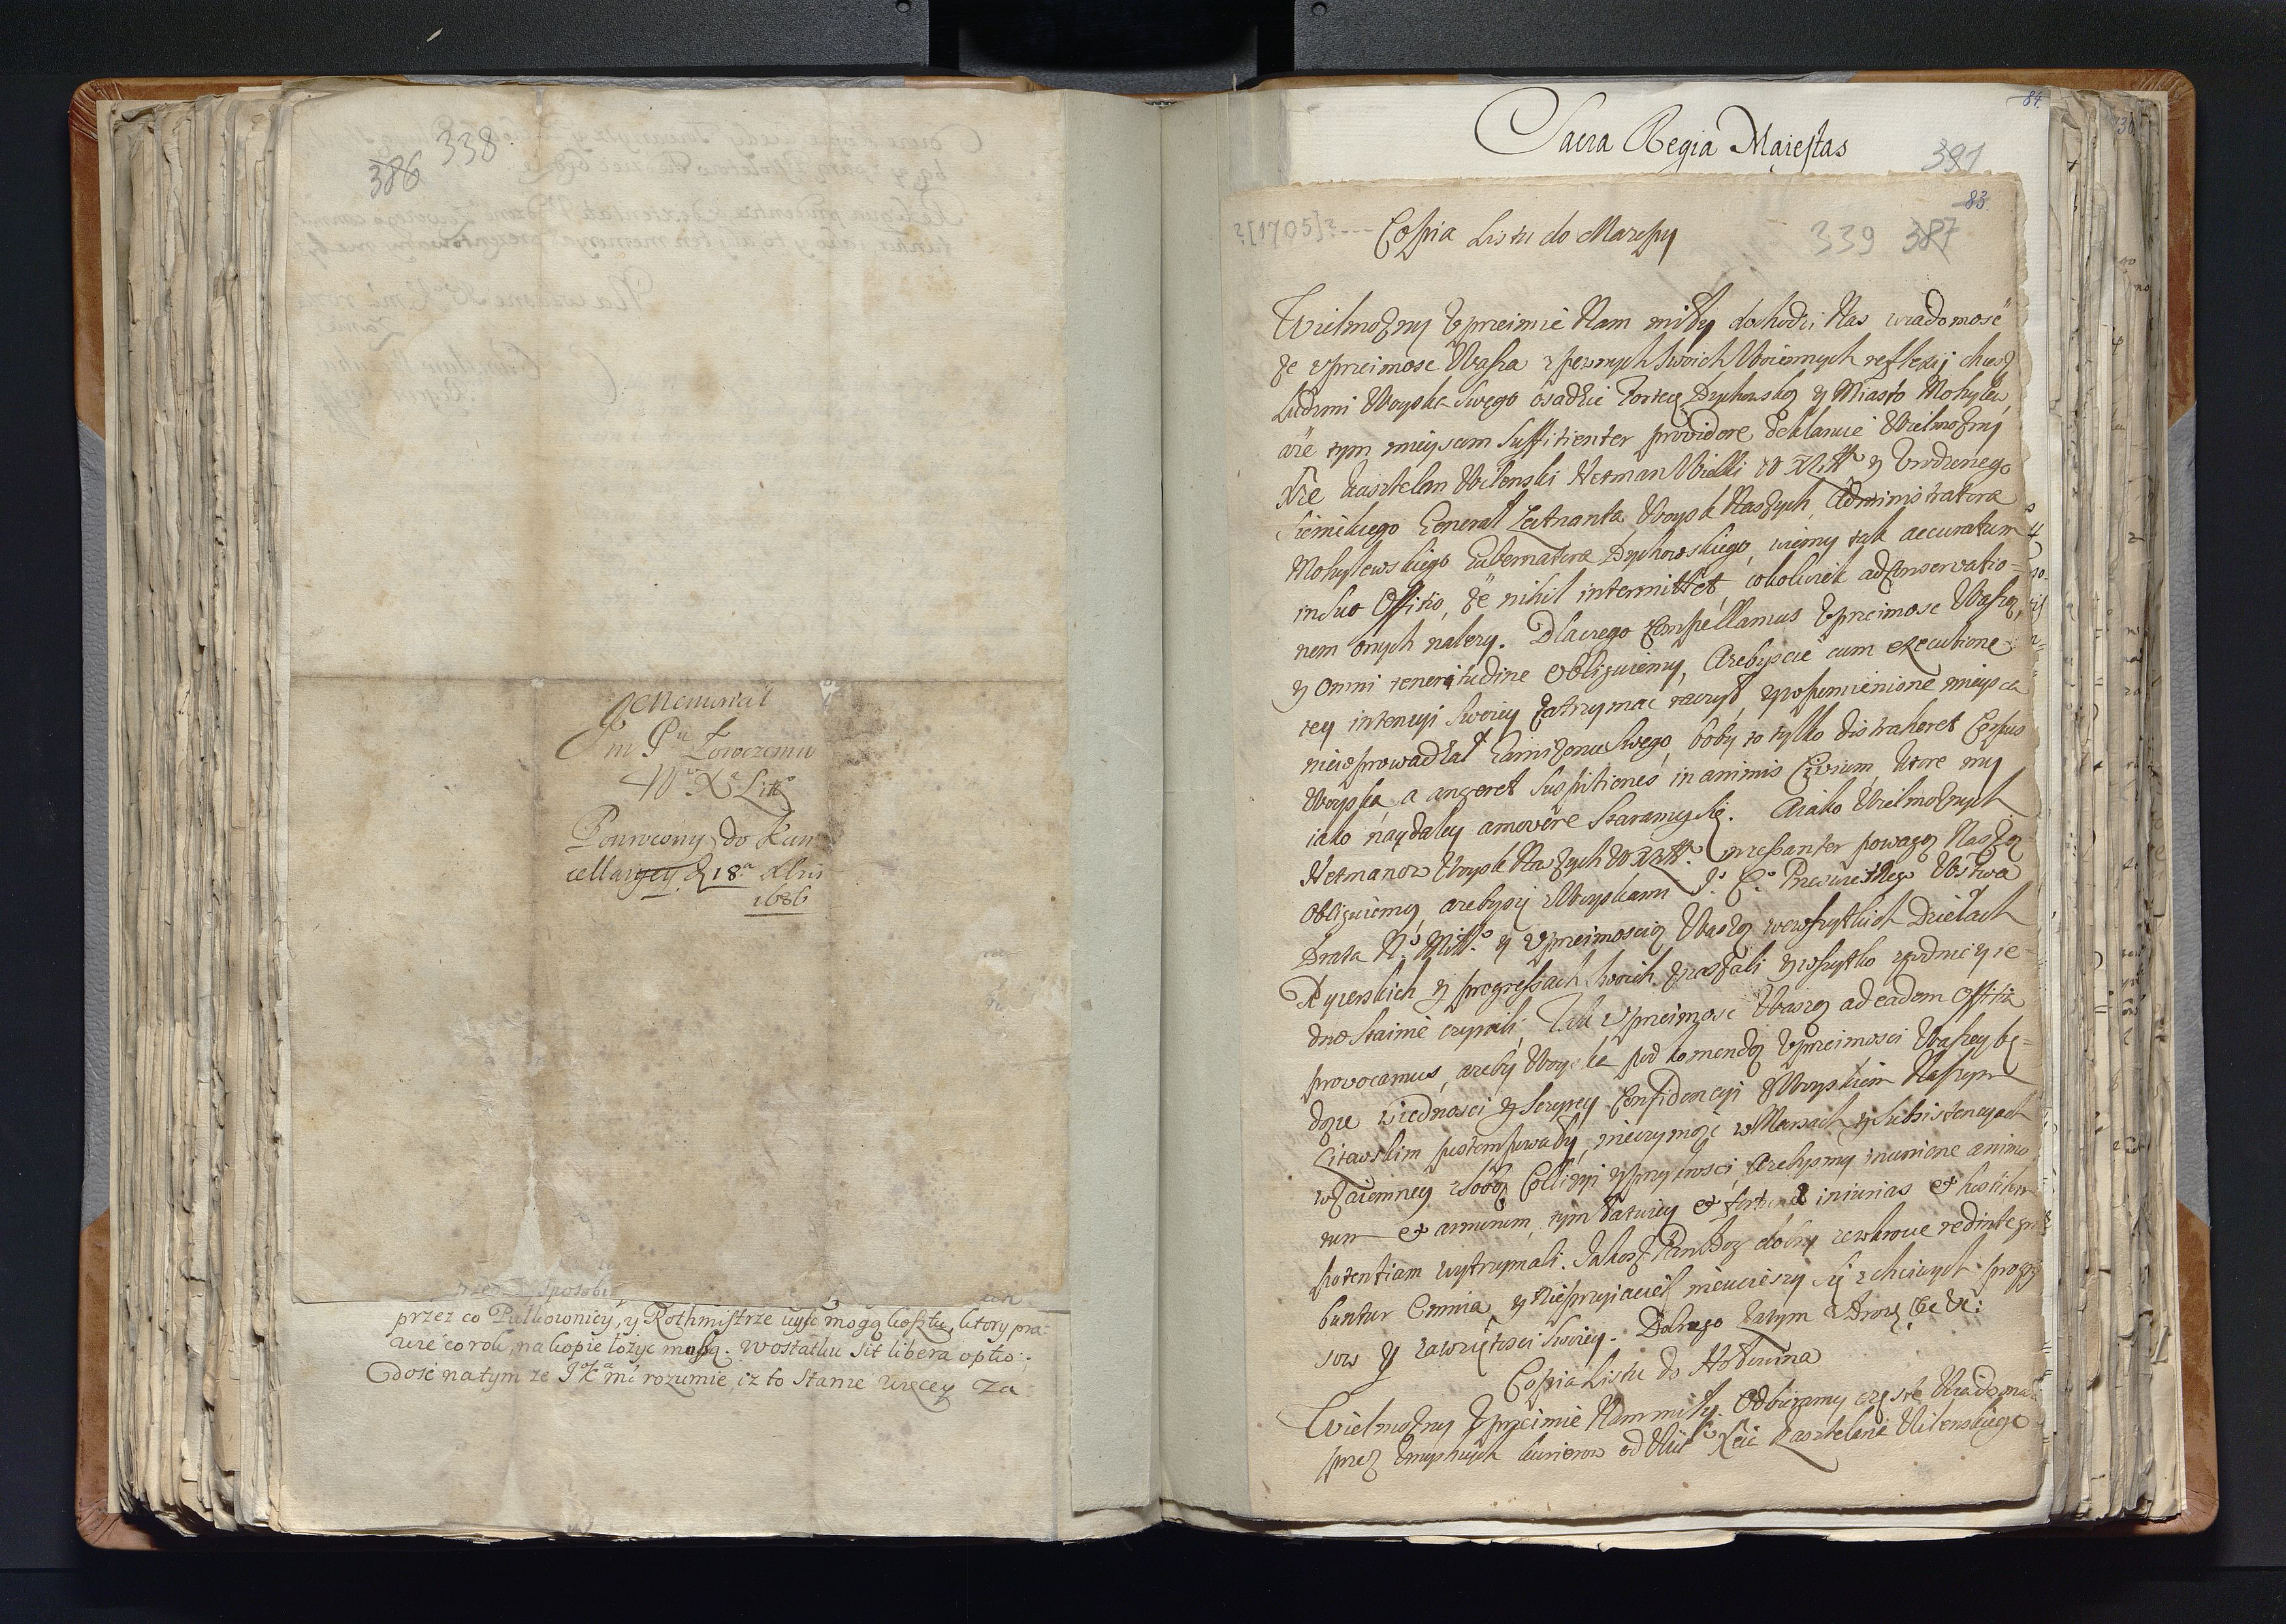 338
386
Memoriał
Im Pu Łowczemu
W X Litt
Ponowiony do Kan
cellaryey d 18a Xbris
1686
sposobi
przez co Pułkownicy, y Rothmistrze uyść mogą kosztu, ktory pra
wie co rok, na kopie łożyć muszą. W ostatku sit libera optio.
Dość na tym ze J K mć rozumie, iz to stanie więcey za
84.
Sacra Regia Maiestas
391
83.
?[1705]?---
339 387
Copia Listu do Mazepy
Wielmożny Uprzeimie Nam miły dochodzi Nas wiadomość
że Uprzeimosc Wasza z pewnych swoich Woiennych reflexij chcesz
Ludzmi Woyska swego osadzic Fortecę Dychowską y Miasto Mohylew,
a że tym mieyscom sufficienter providere deklaruie Wielmożny
Xże Kasztelan Wilenski Hetman Wielki W X Litt y Urodzonego
Sienickiego General Leitnanta Woysk Naszych, Administratora
Mohylewskiego Gubernatora Dychowskiego, wiemy tak accuratum
in suo Officio, że nihil intermittet, cokolwiek ad conservatio=
nem onych należy. Dlaczego compellamus Uprzeimosc Waszą,
y omni teneritudine obliguiemy, Azebyscie cum executione
tey intencyi swoiey zatrzymac raczył, y w pomienione mieysca
niewprowadzał Garnizonu swego, boby to tylko distraheret Corpus
Woyska, a angeret suspitiones in animis Civium, ktore my
iako naydaley amovere staramy się. A iako Wielmożnych
Hetmanow Woysk Naszych W X Litt. incessanter powagą Naszą
obliguiemy, azeby się z Woyskami J. C. Przeswietnego Wstwa
Brata N. Mił. y Uprzeimoscią Waszą we wszystkich Dziełach
Rycerskich y progressach swoich znaszali y wszytko zgodnie y ie=
dnostainie czynili, Tak Uprzeimosc Waszą ad eadem Officia
provocamus, azeby Woyska pod komendą Uprzeimosci Waszey bę=
dące w iednosci y szczyrey Confidencyi z Woyskiem Naszym
Litewskim postempowały, nieczyniąc w Marszach y Subsistencyach
wzaiemney z sobą Collizyi y przykrosci, Azebysmy in unione animo
rum et armorum, tym łatwiey et fortunae iniurias et hostilem
potentiam wytrzymali. Jakosz Pan Bog dobry ze wkrotce redintegra
buntur Omnia, y Nieprzyiaciel nieucieszy się z chciwych progres
sow y zawziętosci swoiey. Dobrego zatym Zdrow. &c &c:
Copia Listu do Hołowina
Wielmożny Uprzeimie Nam miły. Odbieramy częste Wiadomosci
przez umyslnych kurierow od Wiel Xcia Kasztelana Wilenskiego